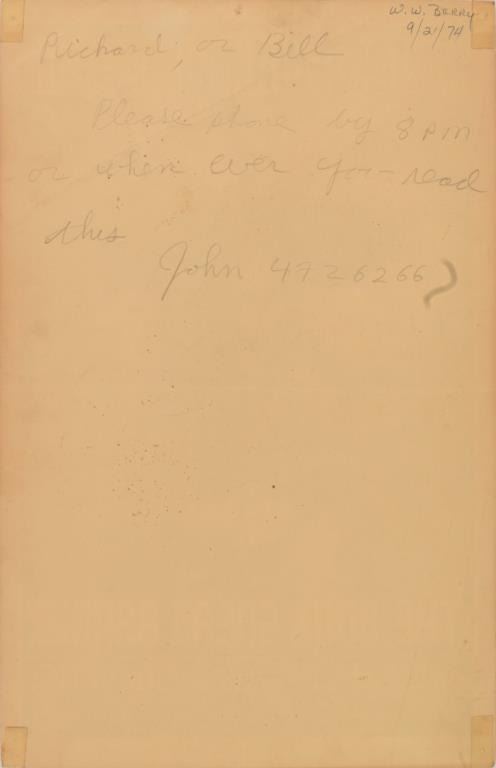 W. W. BERRY
9/21/74
Richard, or Bill
Please phone by 8 pm
or when ever you read
this
John 4726266